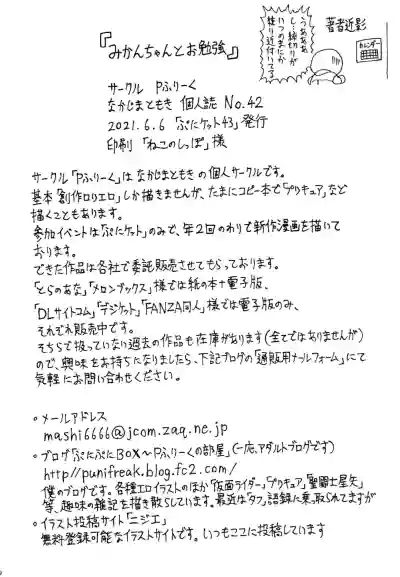 著者近影
うああああ
し、締切りが
いつのまにか
繰り近付いてる
カレンダー
『みかんちゃんとお勉強』
サークル Pふりーく
なかじまともき 個人誌 No.42
2021.6.6「ぷにケット43」発行
印刷「ねこのしっぽ」様
サークル「Pふりーく」は なかじまともき の個人サークルです。
基本「創作ロリエロ」しか描きませんが、たまにコピー本で「プリキュア」など
描くこともあります。
参加イベントは「ぷにケット」のみで、年2回のわりで新作漫画を描いて
おります。
できた作品は各社で委託販売させてもらっております。
「とらのあな」「メロンブックス」様では紙の本+電子版、
「DLサイトコム」「デジケット」「FANZA同人」様では電子版のみ、
それぞれ販売中です。
そちらで扱っていない過去の作品も在庫があります(全てではありませんが)
ので、興味をお持ちになりましたら、下記ブログの「通販用メールフォーム」にて
気軽にお問い合わせください。
・メールアドレス
mashi6666@jcom.zaq.ne.jp
・ブログ「ぷにぷにBOX〜Pふりーくの部屋」(一応、アダルトブログです)
http://punifreak.blog.fc2.com/
僕のブログです。各種エロイラストのほか「仮面ライダー」「プリキュア」「聖闘士星矢」
等、趣味の雑記を描き散らしています。最近は「タフ」語録に乗っ取られてますが
・イラスト投稿サイト「ニジエ」
無料登録可能なイラストサイトです。いつもここに投稿しています